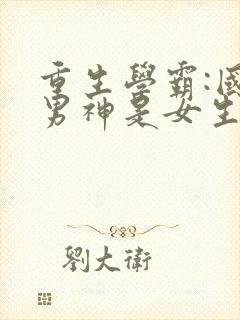 重生學霸:國
男神是女生
劉大衛